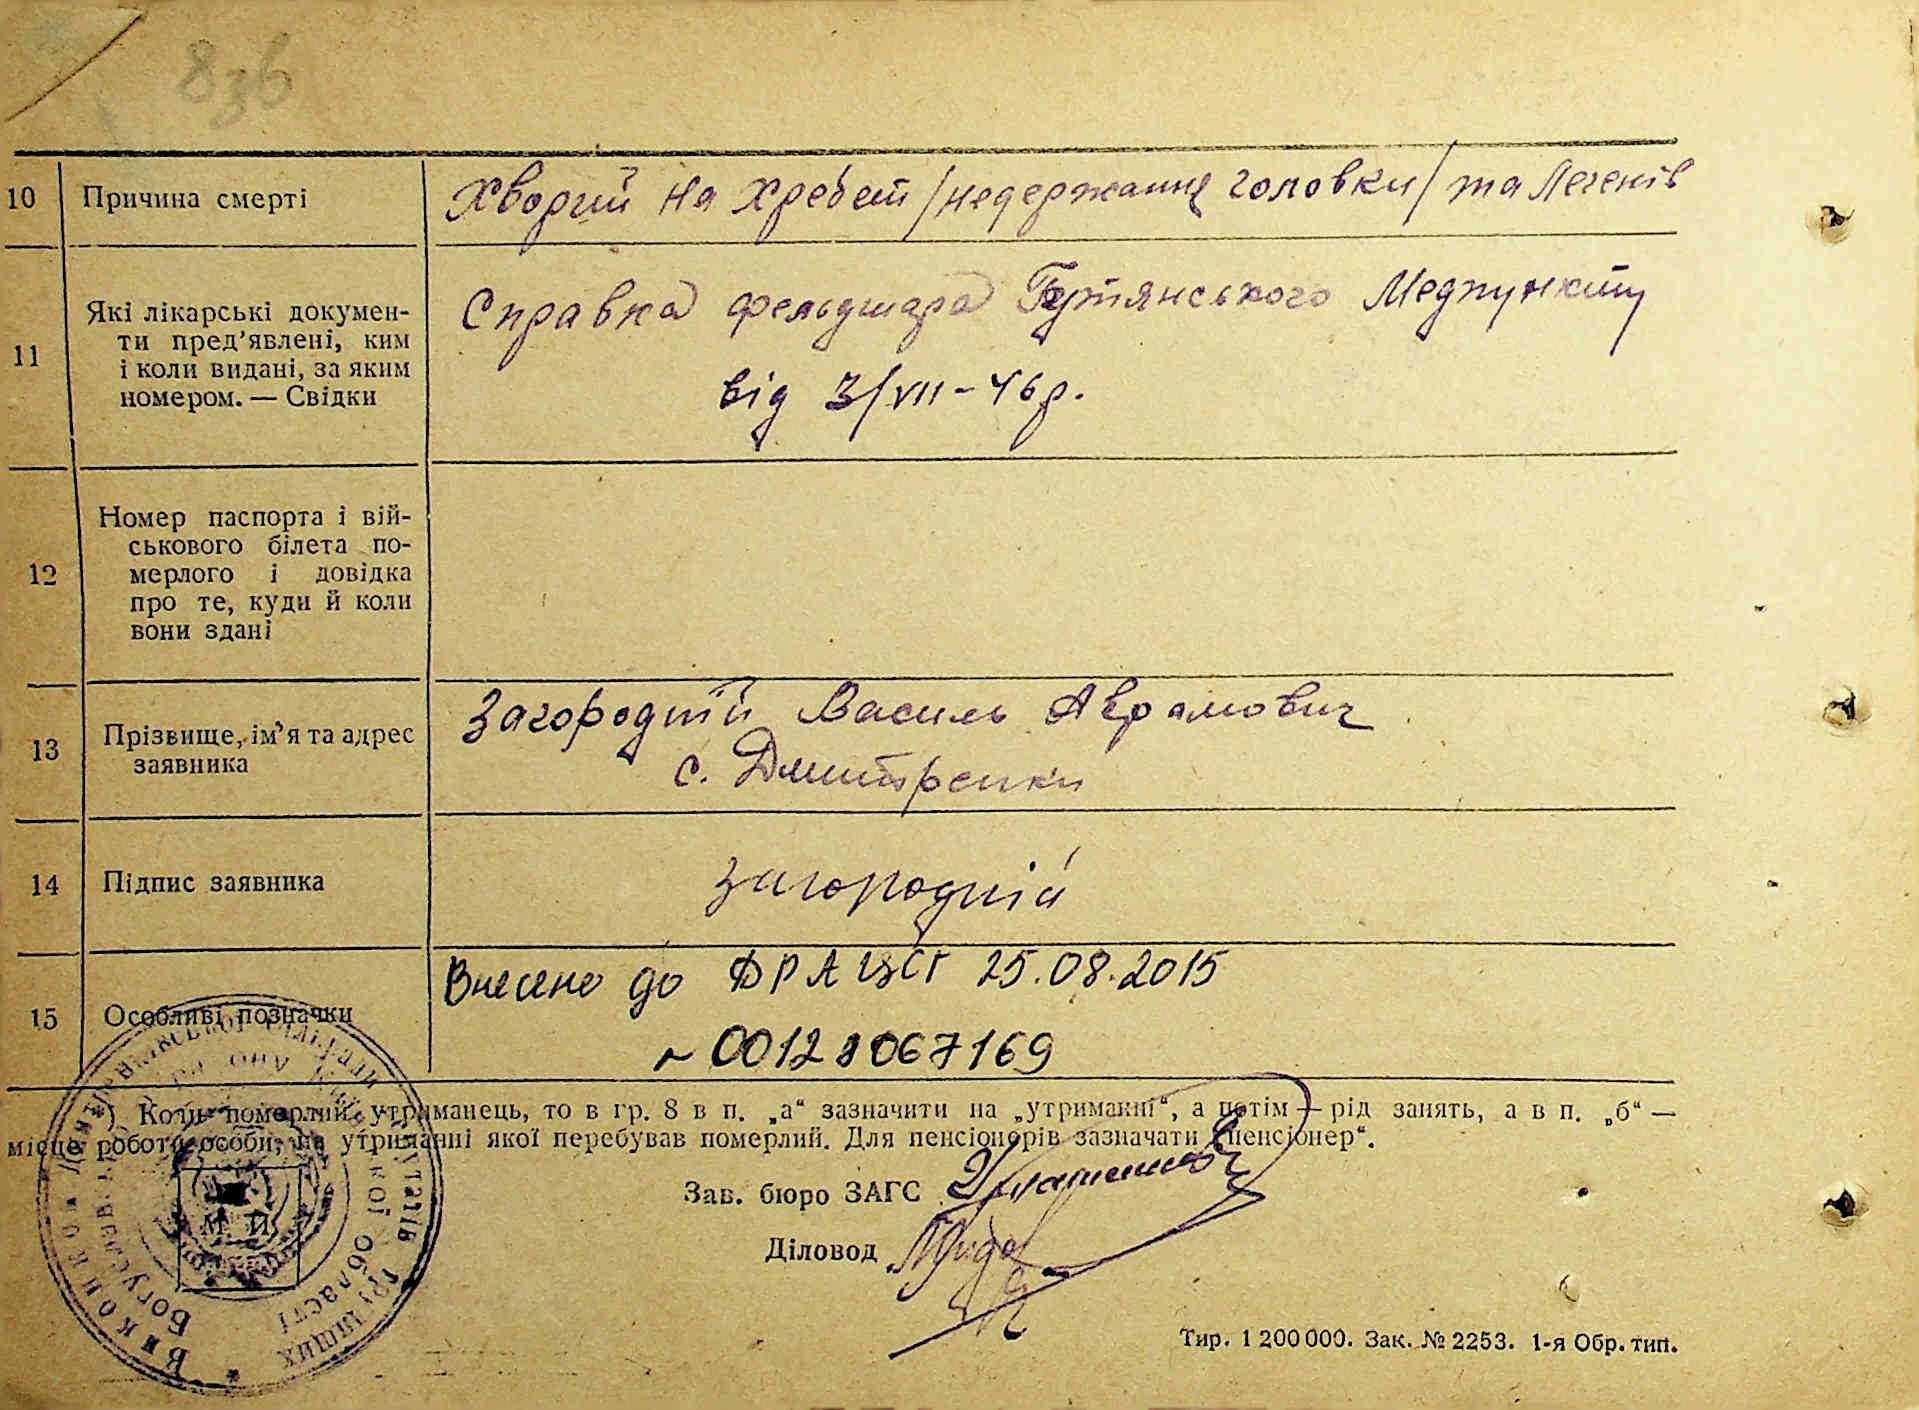 836
10 Причина смерті Хворий на хребет /недержання головки/ та легенів
11 Які лікарські докумен-
ти пред'явлені, ким
і коли видані, за яким
номером. — Свідки
Справка фельдшара Гутянського Медпункту
від 3/VII-46р.
12 Номер паспорта і вій-
ськового білета по-
мерлого і довідка
про те, куди й коли
вони здані
13 Прізвище, ім'я та адрес
заявника
Загородній Василь Аврамович
с. Дмитренки
14 Підпис заявника Загородній
15 Особливі позначки Внесено до ДРАЦСГ 25.08.2015
00128067169
*) Коли померлий утриманець, то в гр. 8 в п. „а“ зазначити на „утриманні“, а потім — рід занять, а в п. „б“ —
місце роботи особи, на утриманні якої перебував померлий. Для пенсіонерів зазначати „пенсіонер“.
Зав. бюро ЗАГС
Діловод
Виконком трудящих
Богуславського області
М П
Тир. 1 200 000. Зак. № 2253. 1-я Обр. тип.